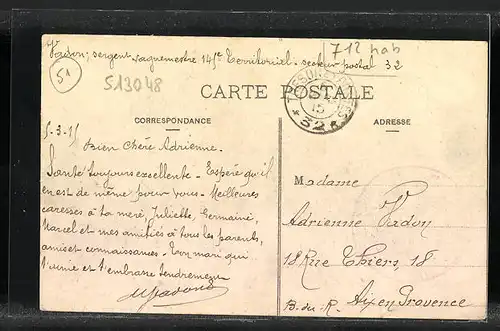 Vadon, sergent vaguemestre 145e Territorial - secteur postal 32
712 hab
51
513048
CARTE POSTALE
TRESOR ET POSTES
15
* 32 *
CORRESPONDANCE
ADRESSE
5-3-15
Bien Chère Adrienne -
Santé toujours excellente - Espère qu'il
en est de même pour vous - Meilleures
caresses à ta mère, Juliette, Germaine,
Marcel et mes amitiés à tous les parents,
amis et connaissances - Ton mari qui
t'aime et t'embrasse tendrement
Vadon
Madame
Adrienne Vadon
18 Rue Thiers, 18
Aix en Provence
B. du. R.